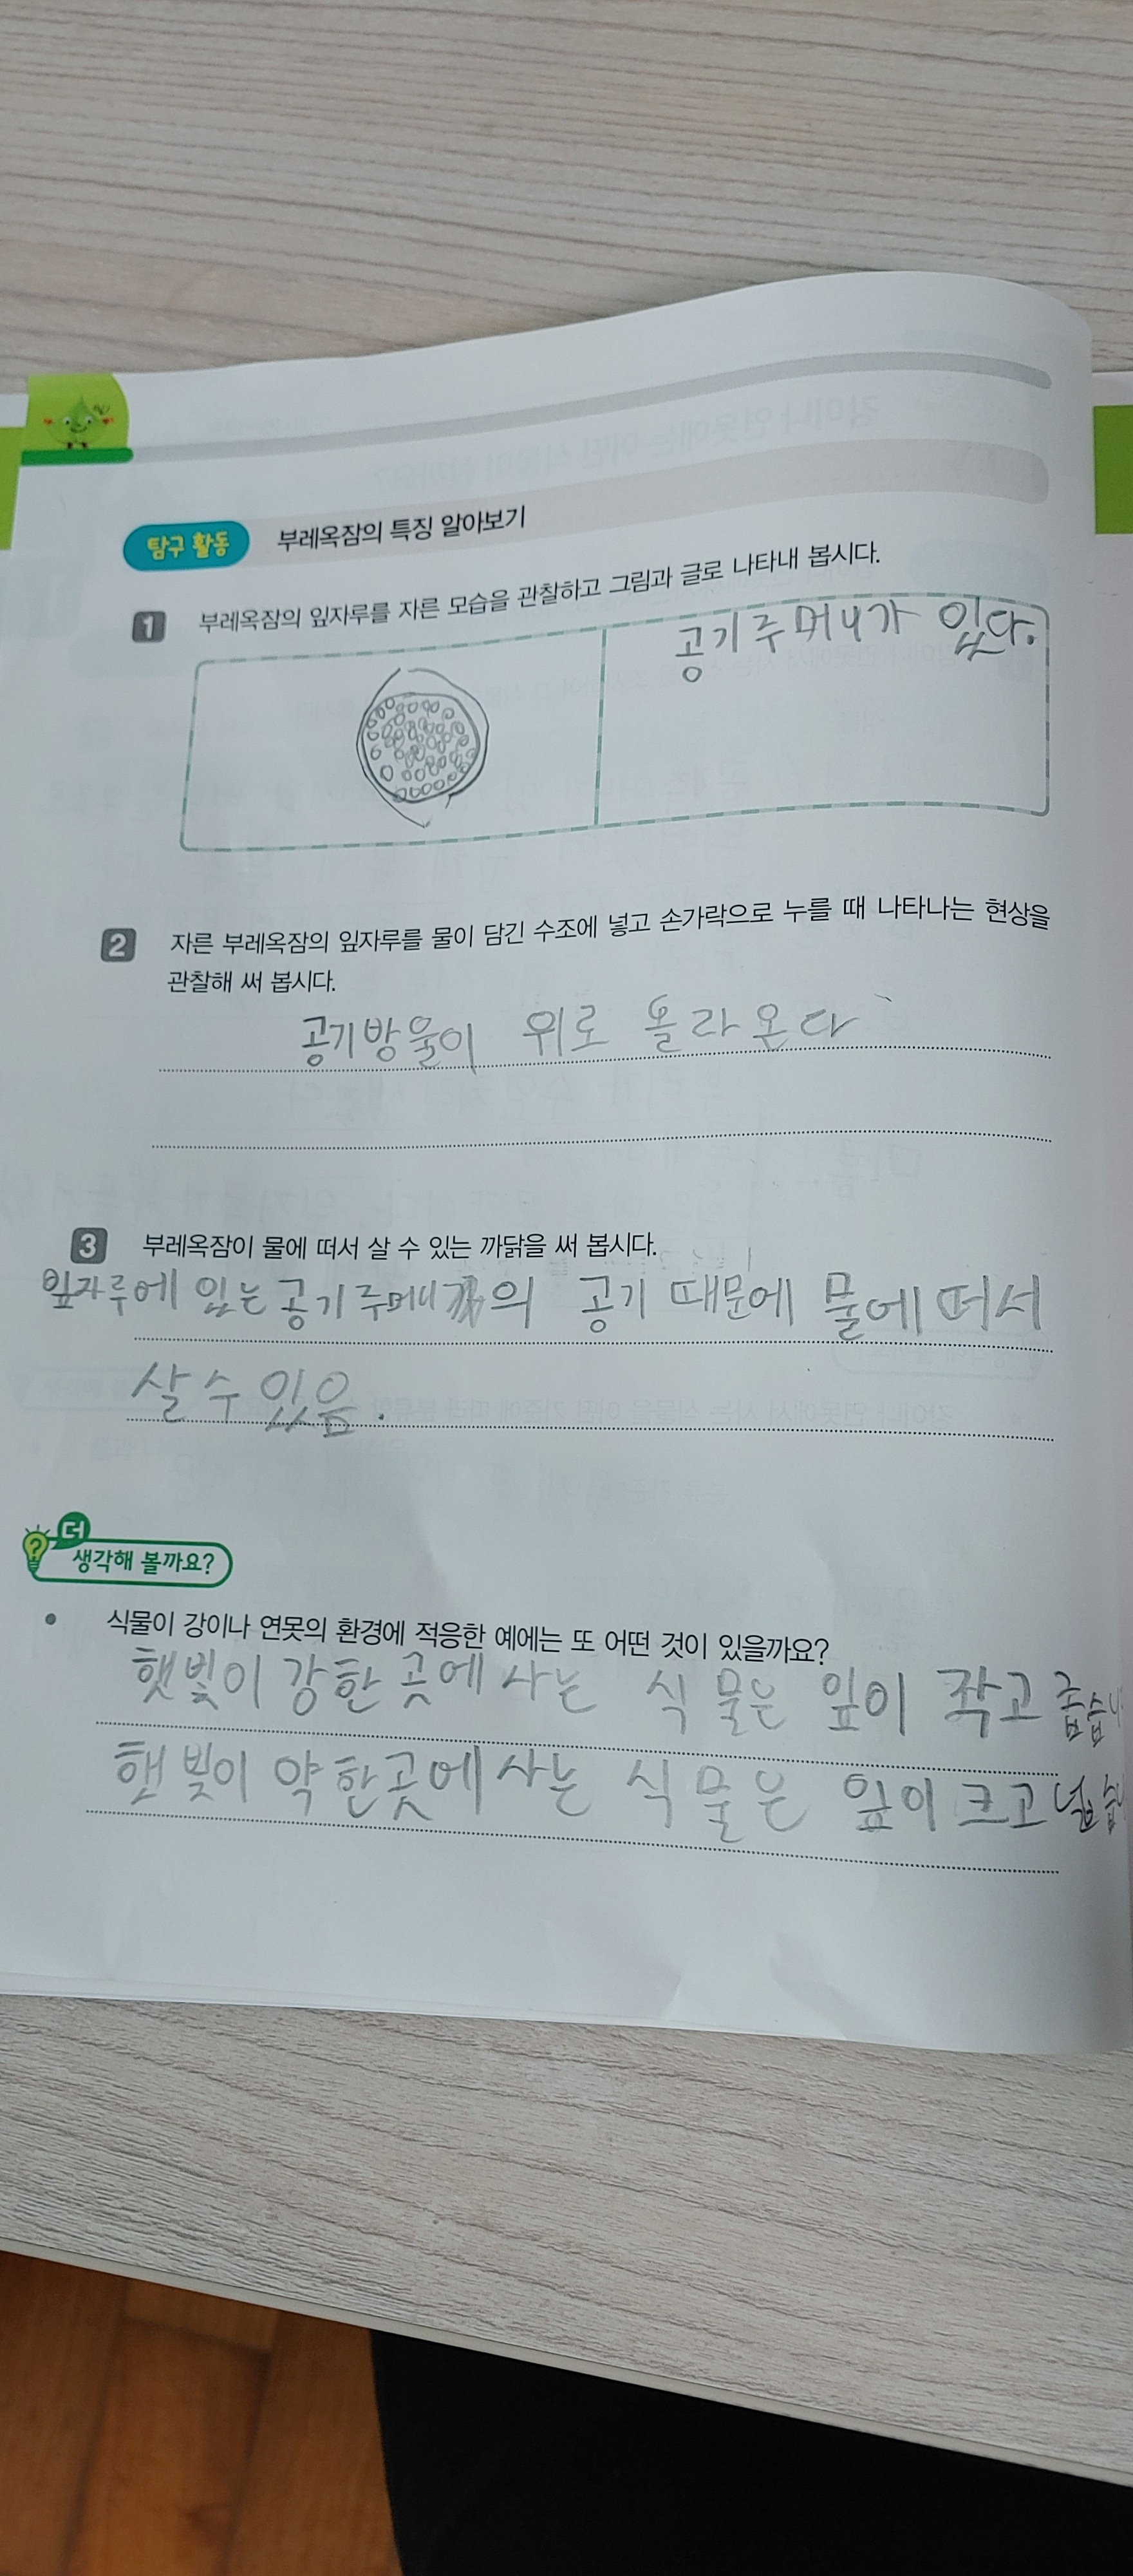 탐구 활동 부레옥잠의 특징 알아보기
1 부레옥잠의 잎자루를 자른 모습을 관찰하고 그림과 글로 나타내 봅시다.
공기주머니가 있다.
2 자른 부레옥잠의 잎자루를 물이 담긴 수조에 넣고 손가락으로 누를 때 나타나는 현상을
관찰해 써 봅시다.
공기방울이 위로 올라온다
3 부레옥잠이 물에 떠서 살 수 있는 까닭을 써 봅시다.
잎자루에 있는 공기주머니의 공기 때문에 물에 떠서
살 수 있음.
더
생각해 볼까요?
• 식물이 강이나 연못의 환경에 적응한 예에는 또 어떤 것이 있을까요?
햇빛이 강한 곳에 사는 식물은 잎이 작고 좁습니
햇빛이 약한곳에 사는 식물은 잎이 크고 넓습